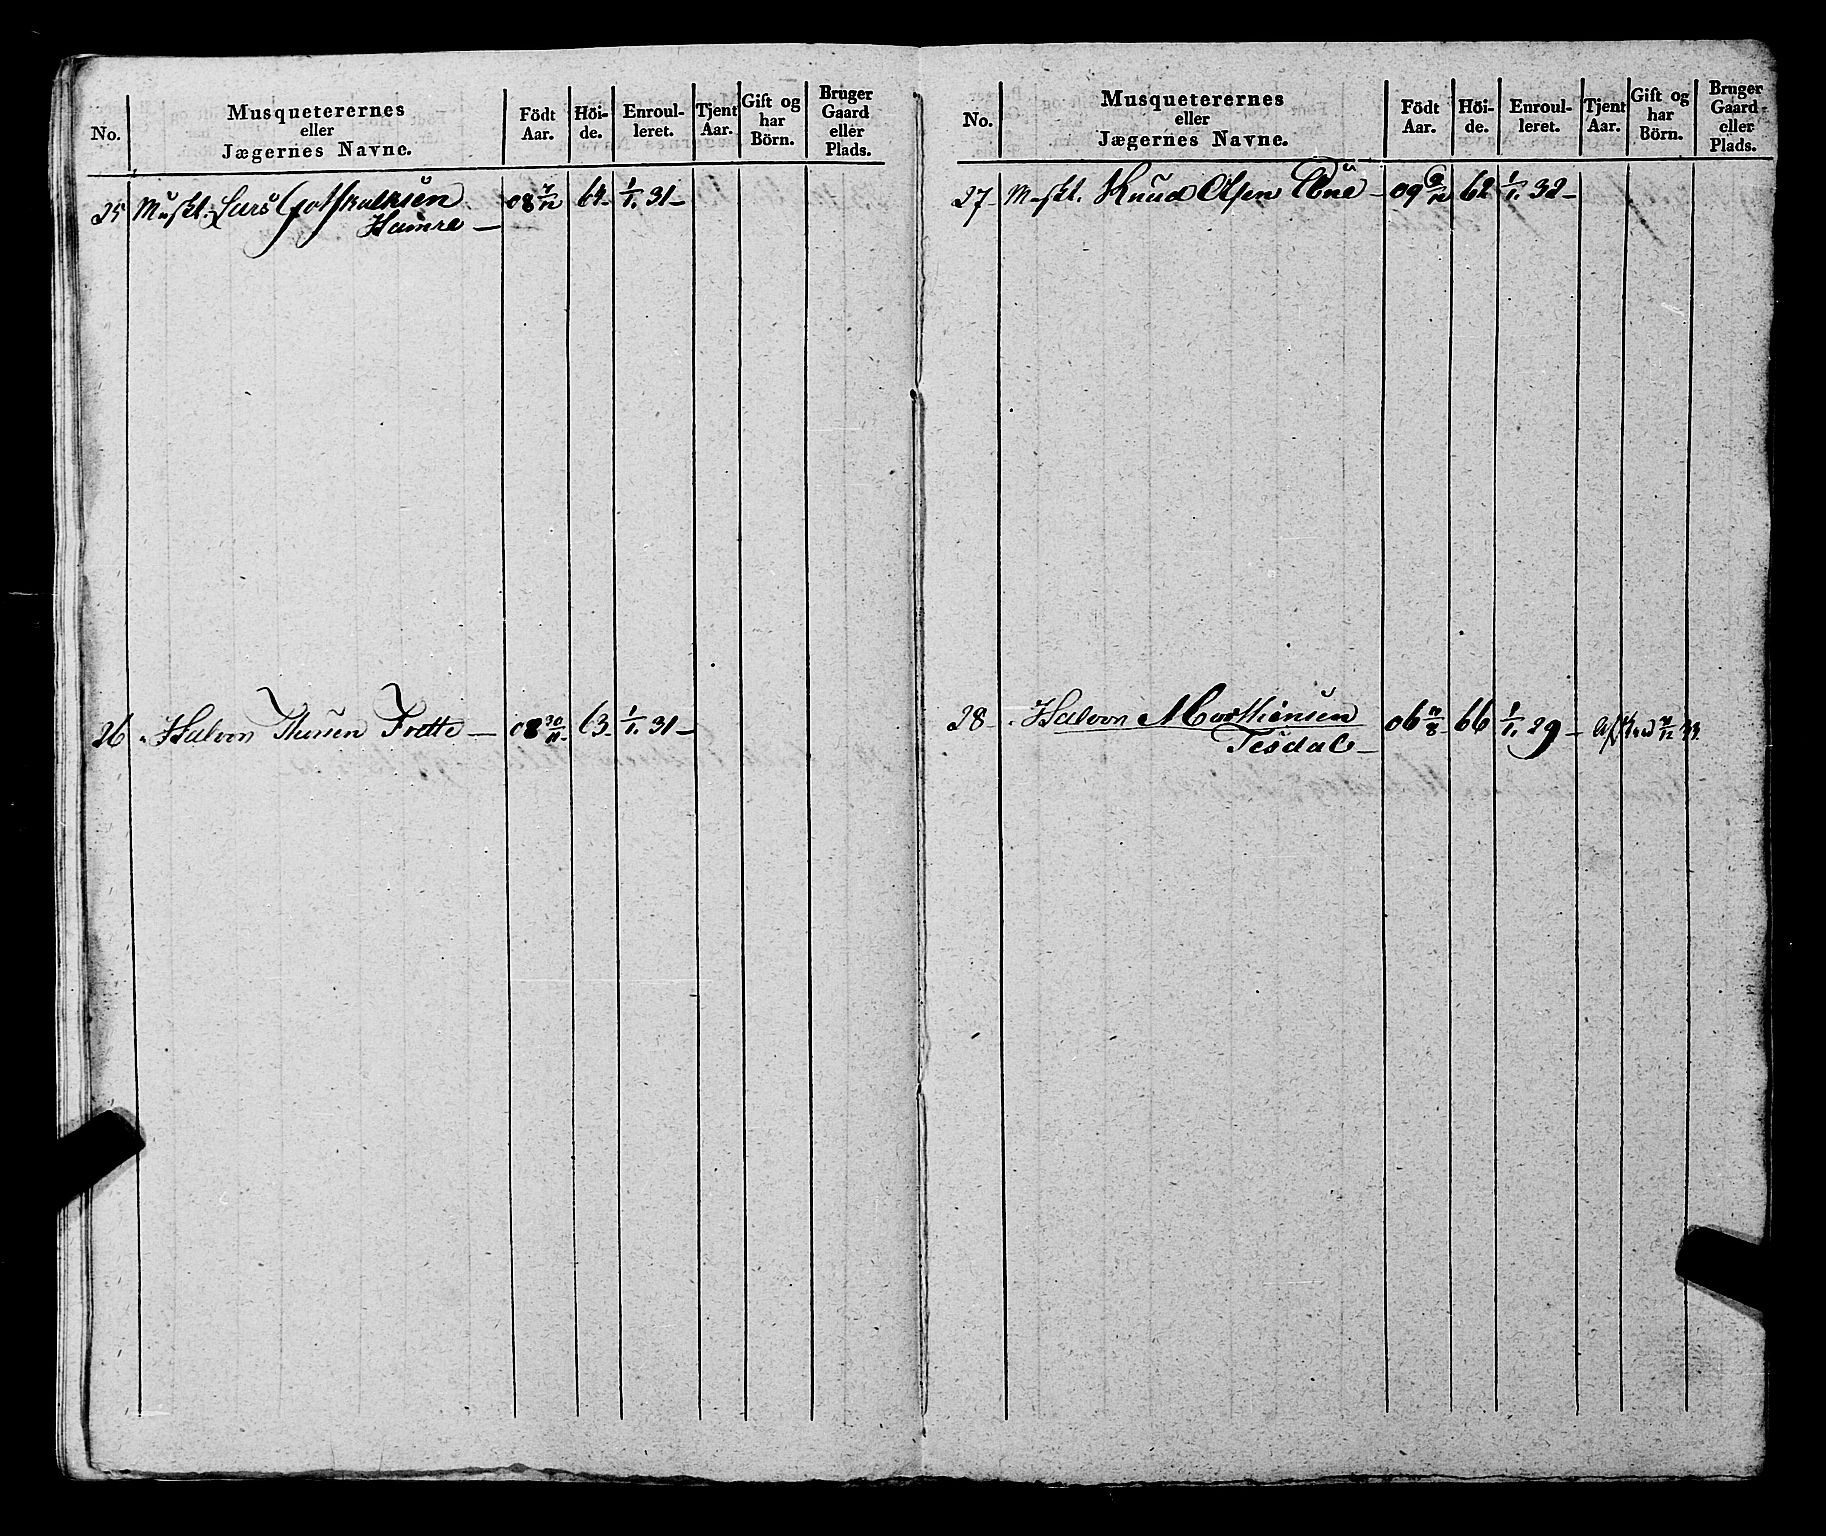 No.
Musqueterernes
eller
Jægernes Navne.
Födt
Aar.
Höi-
de.
Enroul-
leret.
Tjent
Aar.
Gift og
har
Börn.
Bruger
Gaard
eller
Plads.
25 Muskt. Lars Gotskalksen 08 7/12 64 1/1 31
Hamre
26 Halvor Thersen Frette 08 30/11 63 1/1 31
No.
Musqueterernes
eller
Jægernes Navne.
Födt
Aar.
Höi-
de.
Enroul-
leret.
Tjent
Aar.
Gift og
har
Börn.
Bruger
Gaard
eller
Plads.
27 Muskt. Knud Olsen 09 62 1/1 32
28 Halvor Morthensen 06 66 1/1 29
Tesdale